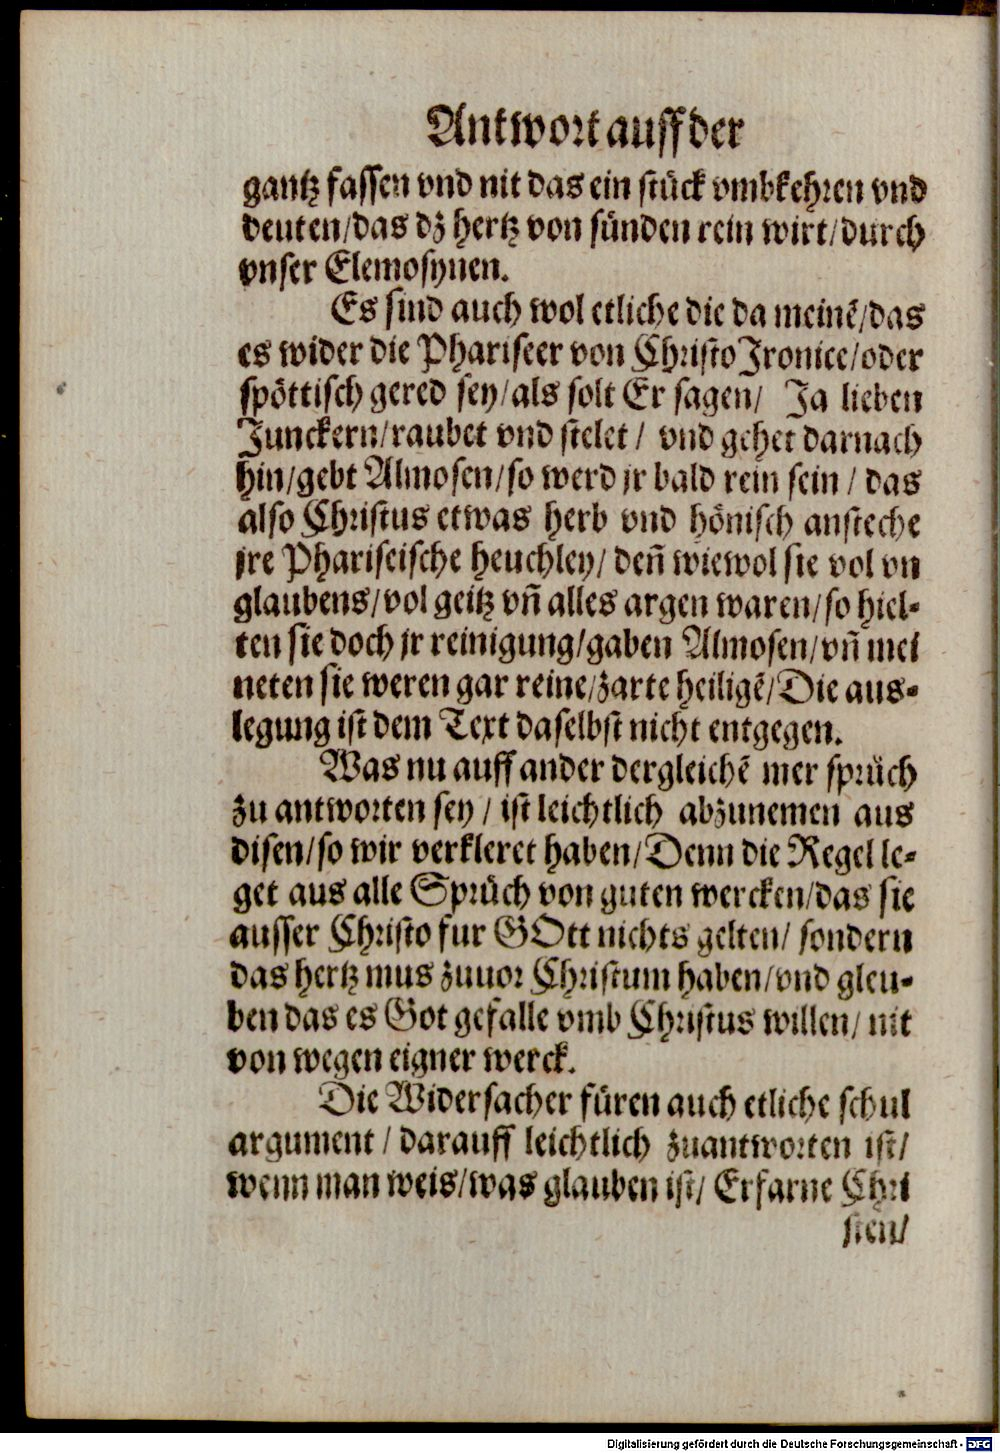 Antwort auff der
gantz fassen vnd nit das ein stück vmbkehren vnd
deuten/das dz hertz von sünden rein wirt/durch
vnser Elemosynen.
Es sind auch wol etliche die da meinē/das
es wider die Phariseer von Christo Ironice/oder
spöttisch gered sey/als solt Er sagen/ Ja lieben
Junckern/raubet vnd stelet/ vnd gehet darnach
hin/gebt Almosen/so werd jr bald rein sein/ das
also Christus etwas herb vnd hönisch ansteche
jre Phariseische heuchley/ den̄ wiewol sie vol vn
glaubens/vol geitz vn̄ alles argen waren/so hiel-
ten sie doch jr reinigung/gaben Almosen/vn̄ mei
neten sie weren gar reine/zarte heiligē/Die aus-
legung ist dem Text daselbst nicht entgegen.
Was nu auff ander dergleichē mer sprüch
zu antworten sey/ ist leichtlich abzunemen aus
disen/so wir verkleret haben/Denn die Regel le-
get aus alle Sprüch von guten wercken/das sie
ausser Christo fur GOtt nichts gelten/ sondern
das hertz mus zuuor Christum haben/vnd gleu-
ben das es Got gefalle vmb Christus willen/ nit
von wegen eigner werck.
Die Widersacher füren auch etliche schul
argument/ darauff leichtlich zuantworten ist/
wenn man weis/was glauben ist/ Erfarne Chri
sten/
Digitalisierung gefördert durch die Deutsche Forschungsgemeinschaft - DFG